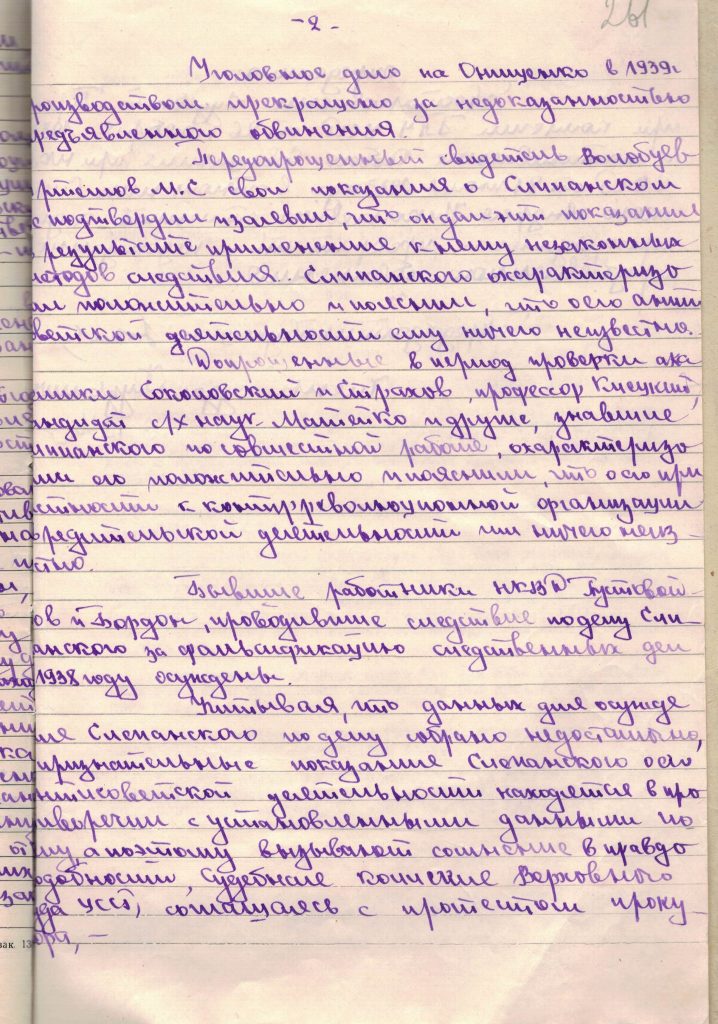 -2-
261
Уголовное дело на Онищенко в 1939г
роизводством прекращено за недоказанностью
редъявленного обвинения
Передопрошенный свидетель Волобуев-
ртемов М.С свои показания о Слипанском
е подтвердил и заявил, что он дал эти показания
в результате применения к нему незаконных
методов следствия. Слипанского охарактеризо
ал положительно и пояснил, что о его анти
ветской деятельности ему ничего неизвестно.
Допрошенные в период проверки ака
емики Соколовский и Страхов, профессор
андидат с/х наук Матейко и другие, знавшие
липанского по совместной работе, охарактеризо
али его положительно и пояснили, что о его при
стности к контрреволюционной организации
вредительской деятельности им ничего неиз-
стно.
Бывшие работники НКВД
ов и Гордон, проводившие следствие по делу Сли-
анского за фальсификацию следственных дел
1938 году осуждены.
Учитывая, что данных для осужде
ия Слепанского по делу собрано недостаточно,
признательные показания Слепанского о его
нтисоветской деятельности находятся в про
тиворечии с установленными данными по
лу, а поэтому вызывают сомнение в правдо
одобности, Судебная коллегия Верховного
уда УССР, соглашаясь с протестом проку-
ора, -
зак. 13